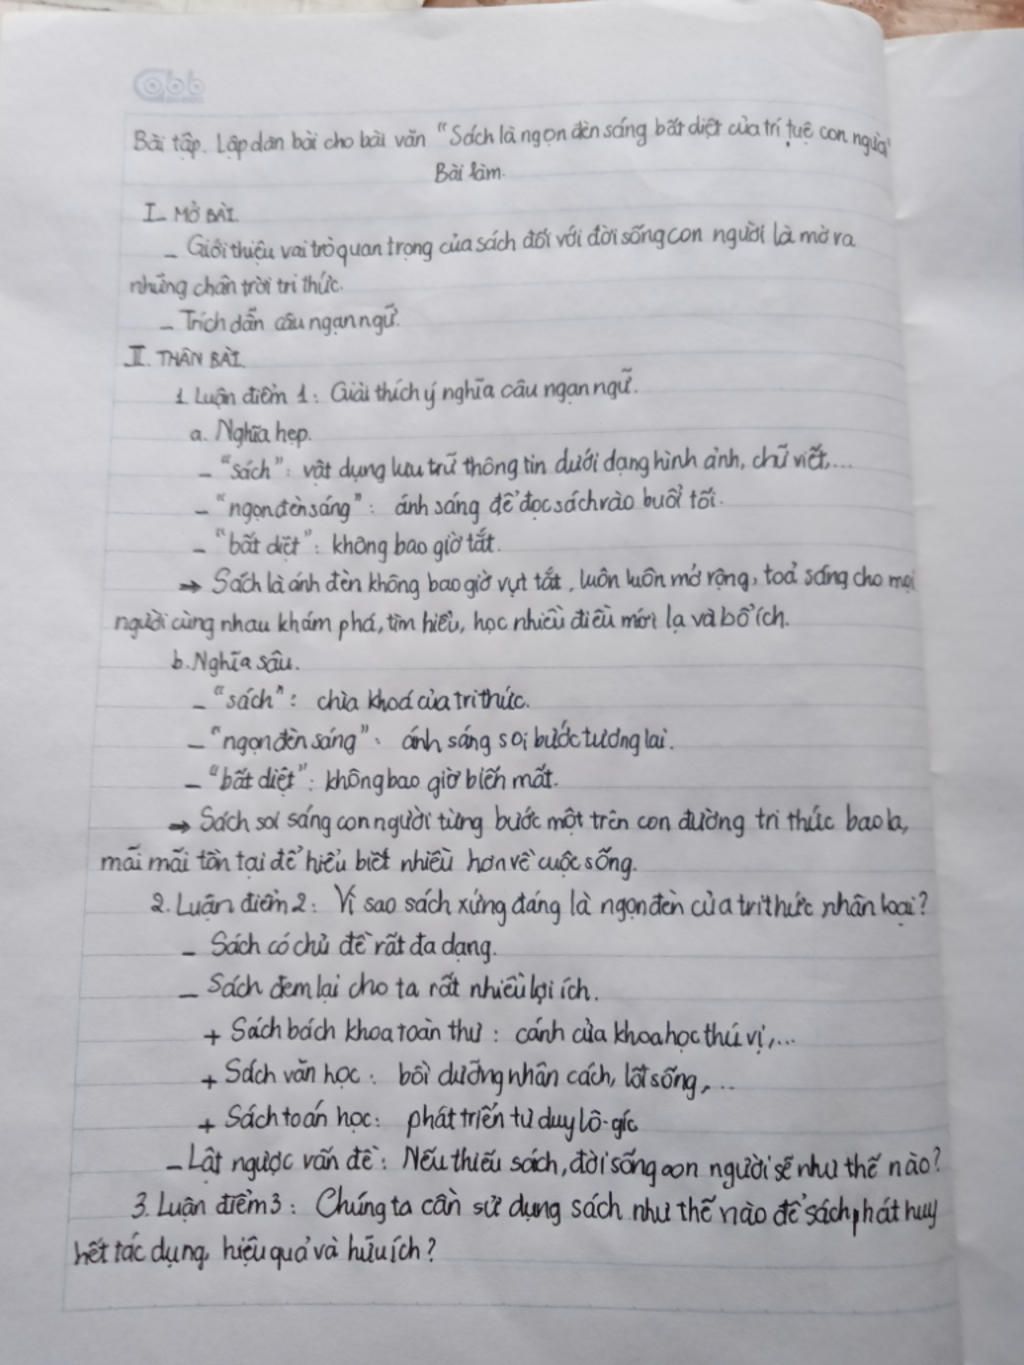 Cabb
Bài tập. Lập dàn bài cho bài văn "Sách là ngọn đèn sáng bất diệt của trí tuệ con người"
Bài làm.
I. MỞ BÀI.
- Giới thiệu vai trò quan trọng của sách đối với đời sống con người là mở ra
những chân trời tri thức.
- Trích dẫn câu ngạn ngữ.
II. THÂN BÀI.
1. Luận điểm 1: Giải thích ý nghĩa câu ngạn ngữ.
a. Nghĩa hẹp.
- "sách": vật dụng lưu trữ thông tin dưới dạng hình ảnh, chữ viết,...
- "ngọn đèn sáng": ánh sáng để đọc sách vào buổi tối.
- "bất diệt": không bao giờ tắt.
→ Sách là ánh đèn không bao giờ vụt tắt, luôn luôn mở rộng, toả sáng cho mọi
người cùng nhau khám phá, tìm hiểu, học nhiều điều mới lạ và bổ ích.
b. Nghĩa sâu.
- "sách": chìa khoá của tri thức.
- "ngọn đèn sáng": ánh sáng soi bước tương lai.
- "bất diệt": không bao giờ biến mất.
→ Sách soi sáng con người từng bước một trên con đường tri thức bao la,
mãi mãi tồn tại để hiểu biết nhiều hơn về cuộc sống.
2. Luận điểm 2: Vì sao sách xứng đáng là ngọn đèn của tri thức nhân loại?
- Sách có chủ đề rất đa dạng.
- Sách đem lại cho ta rất nhiều lợi ích.
+ Sách bách khoa toàn thư: cánh cửa khoa học thú vị,...
+ Sách văn học: bồi dưỡng nhân cách, lối sống,...
+ Sách toán học: phát triển tư duy lô-gíc
- Lật ngược vấn đề: Nếu thiếu sách, đời sống con người sẽ như thế nào?
3. Luận điểm 3: Chúng ta cần sử dụng sách như thế nào để sách phát huy
hết tác dụng, hiệu quả và hữu ích?